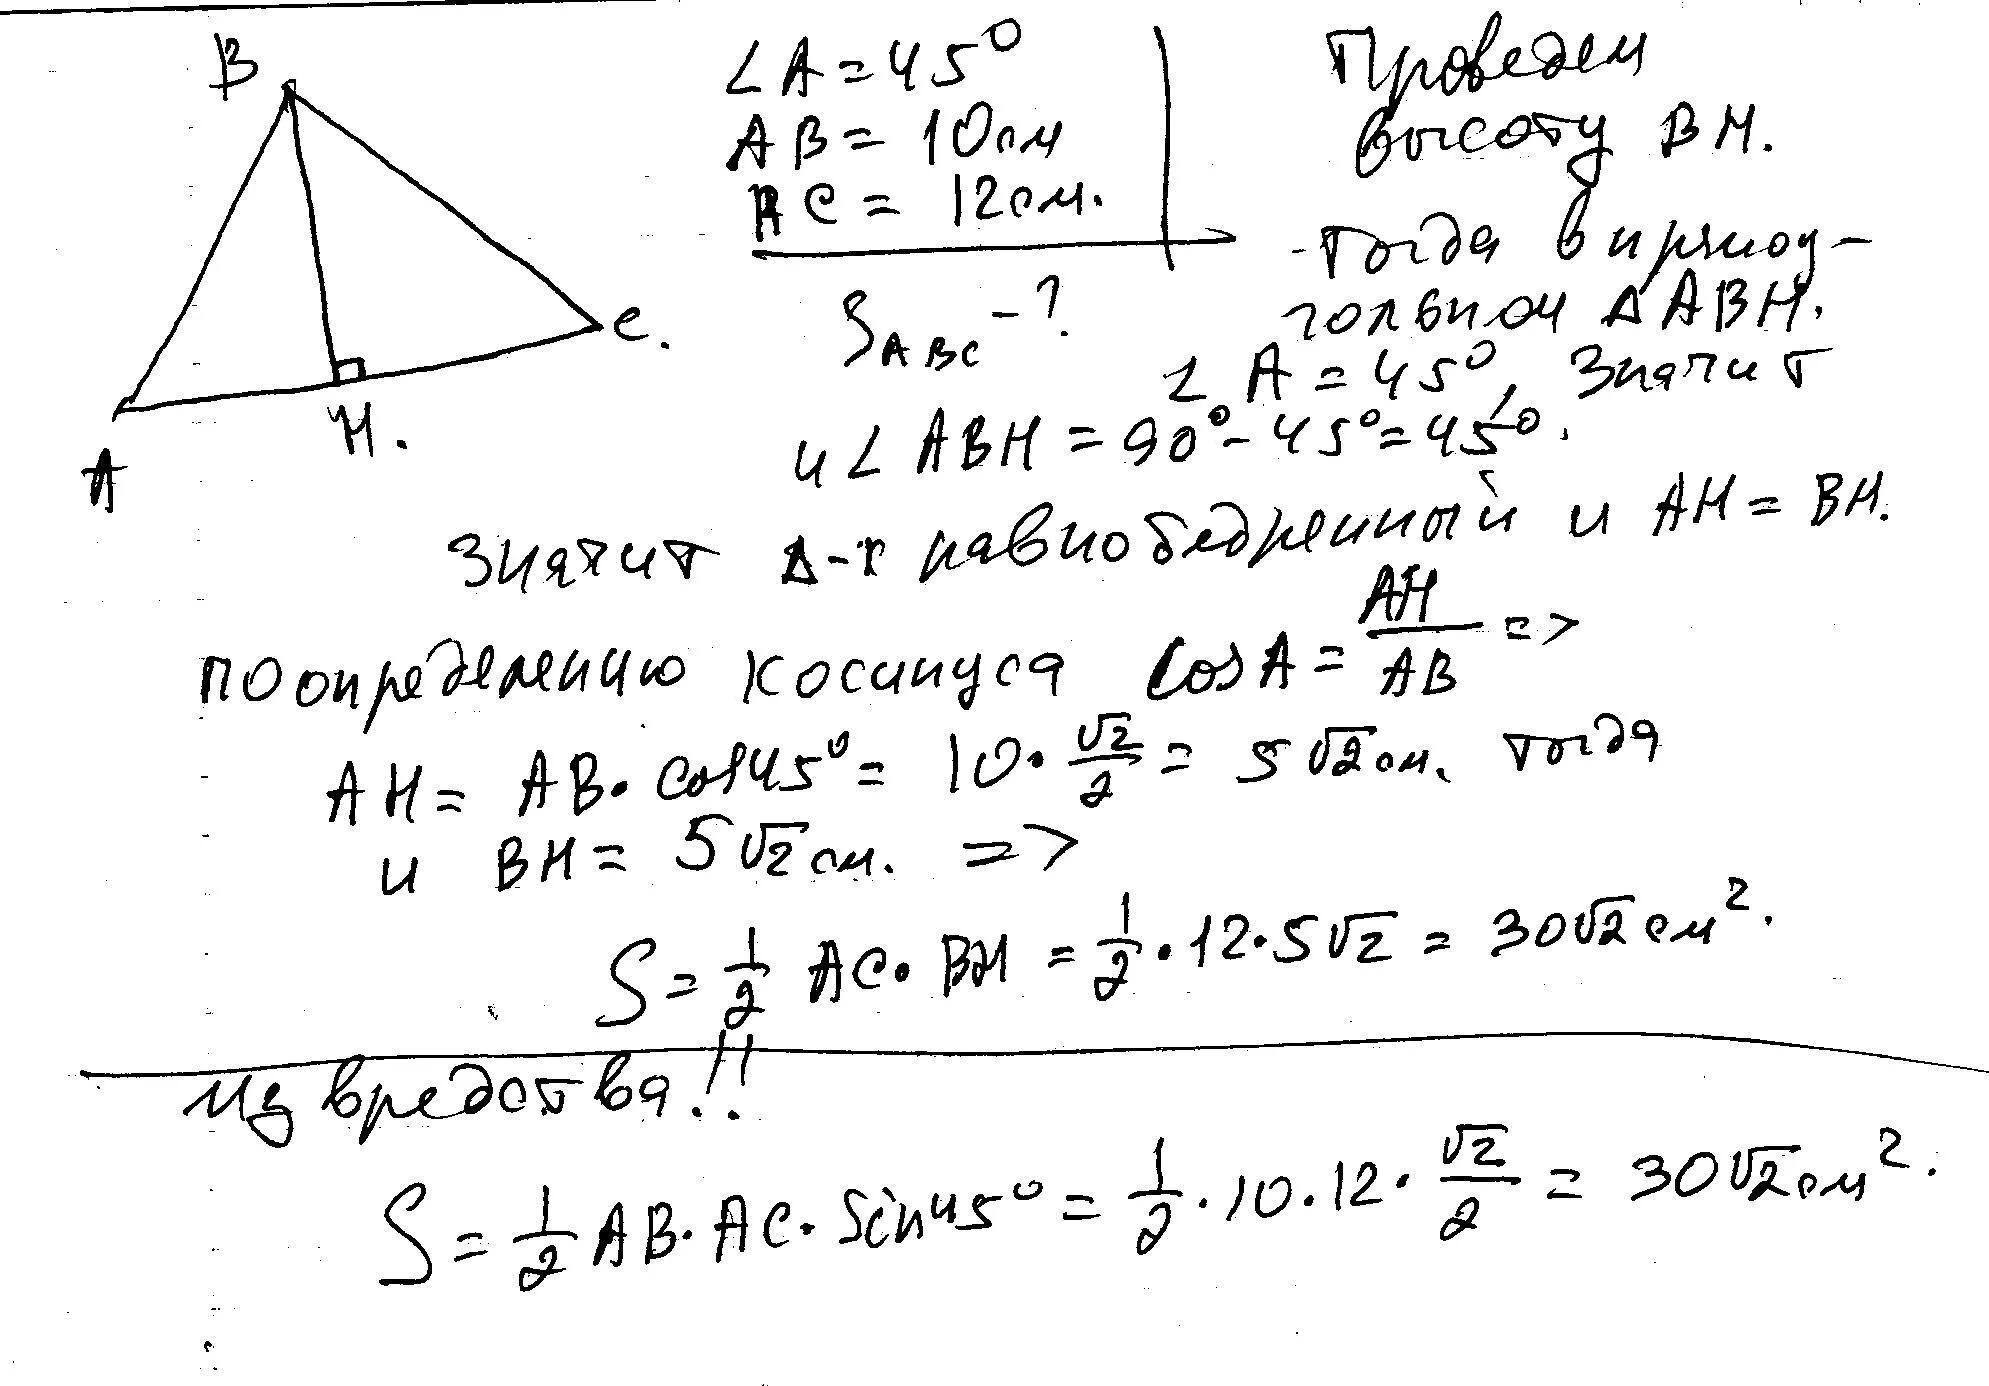 B
C.
H.
A
∠A = 45°
AB = 10см
AC = 12см.
S_ABC - ?
Проведем
высоту BH.
тогда в прямоу-
гольном ΔABH.
∠A = 45°, значит
и ∠ABH = 90° - 45° = 45°.
значит Δ-к равнобедренный и AH = BH.
по определению косинуса cosA = AH/AB =>
AH = AB · cos45° = 10 · √2/2 = 5√2 см. тогда
и BH = 5√2 см. =>
S = 1/2 AC · BH = 1/2 · 12 · 5√2 = 30√2 см².
Из вредства!!
S = 1/2 AB · AC · Sin45° = 1/2 · 10 · 12 · √2/2 = 30√2 см².